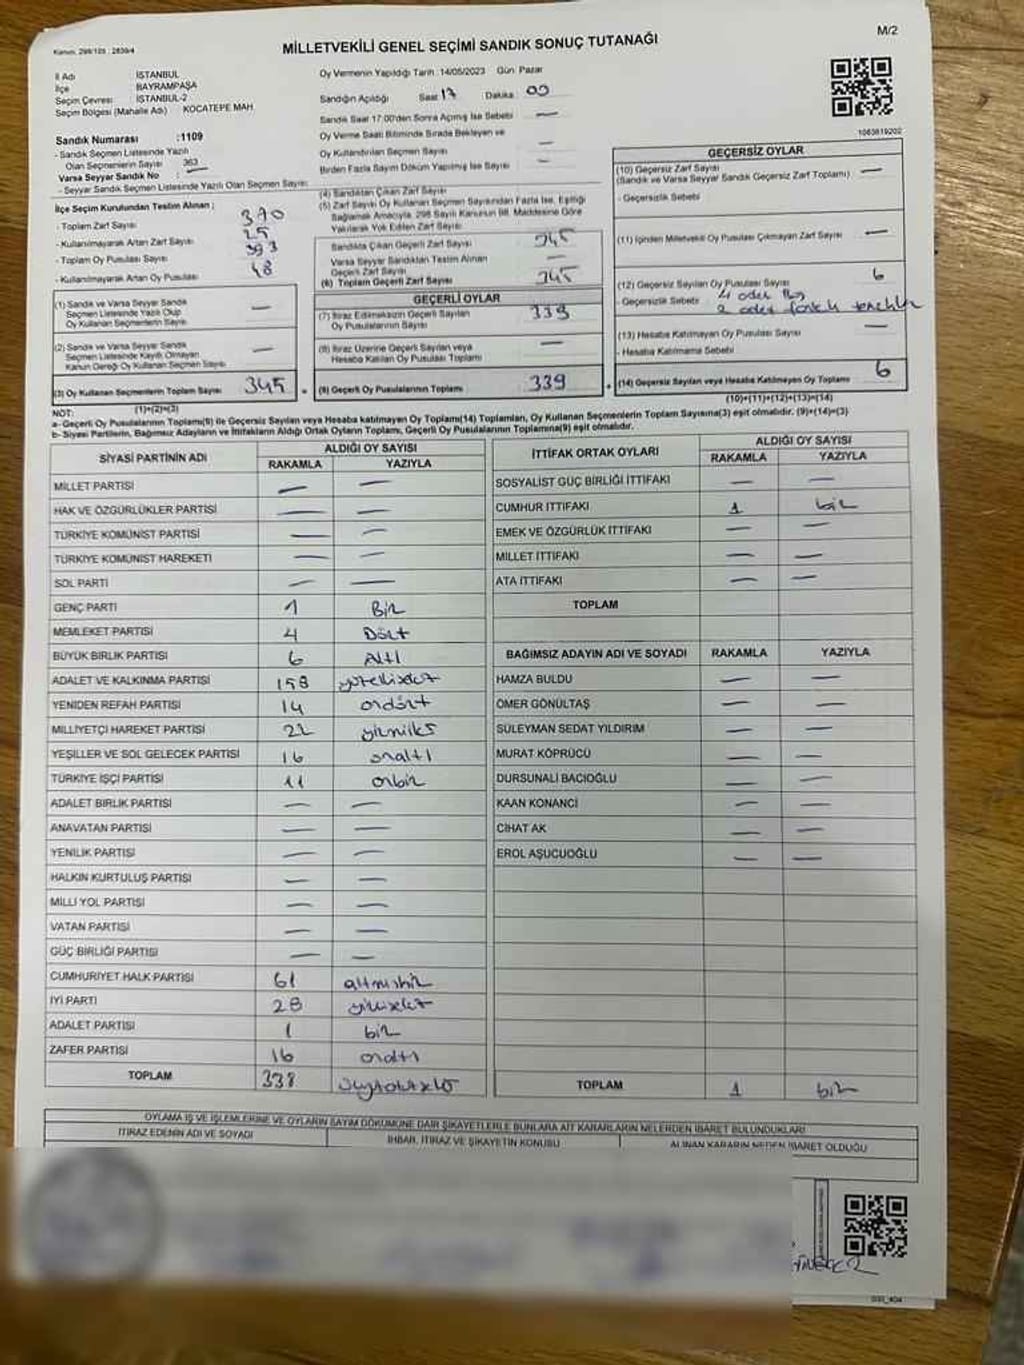 M/2
Kanun: 298/105 : 2839/4
MİLLETVEKİLİ GENEL SEÇİMİ SANDIK SONUÇ TUTANAĞI
İl Adı İSTANBUL
İlçe BAYRAMPAŞA
Seçim Çevresi İSTANBUL-2
Seçim Bölgesi (Mahalle Adı) KOCATEPE MAH.
Sandık Numarası :1109
- Sandık Seçmen Listesinde Yazılı
Olan Seçmenlerin Sayısı 363
Varsa Seyyar Sandık No
- Seyyar Sandık Seçmen Listesinde Yazılı Olan Seçmen Sayısı
Oy Vermenin Yapıldığı Tarih :14/05/2023 Gün Pazar
Sandığın Açıldığı Saat 17 Dakika 00
Sandık Saat 17:00'den Sonra Açılmış İse Sebebi —
Oy Verme Saati Bitiminde Sırada Bekleyen ve
Oy Kullandırılan Seçmen Sayısı —
Birden Fazla Sayım Döküm Yapılmış İse Sayısı —
1083819202
İlçe Seçim Kurulundan Teslim Alınan ;
- Toplam Zarf Sayısı 370
- Kullanılmayarak Artan Zarf Sayısı 25
- Toplam Oy Pusulası Sayısı 393
- Kullanılmayarak Artan Oy Pusulası 48
(1) Sandık ve Varsa Seyyar Sandık
Seçmen Listesinde Yazılı Olup
Oy Kullanan Seçmenlerin Sayısı —
(2) Sandık ve Varsa Seyyar Sandık
Seçmen Listesinde Kayıtlı Olmayan
Kanun Gereği Oy Kullanan Seçmen Sayısı —
(3) Oy Kullanan Seçmenlerin Toplam Sayısı 345
(1)+(2)=(3)
(4) Sandıktan Çıkan Zarf Sayısı
(5) Zarf Sayısı Oy Kullanan Seçmen Sayısından Fazla İse, Eşitliği
Sağlamak Amacıyla, 298 Sayılı Kanunun 98. Maddesine Göre
Yakılarak Yok Edilen Zarf Sayısı
Sandıkta Çıkan Geçerli Zarf Sayısı 345
Varsa Seyyar Sandıktan Teslim Alınan
Geçerli Zarf Sayısı —
(6) Toplam Geçerli Zarf Sayısı 345
GEÇERLİ OYLAR
(7) İtiraz Edilmeksizin Geçerli Sayılan
Oy Pusulalarının Sayısı 339
(8) İtiraz Üzerine Geçerli Sayılan veya
Hesaba Katılan Oy Pusulası Toplamı —
(9) Geçerli Oy Pusulalarının Toplamı 339
GEÇERSİZ OYLAR
(10) Geçersiz Zarf Sayısı
(Sandık ve Varsa Seyyar Sandık Geçersiz Zarf Toplamı) —
- Geçersizlik Sebebi
(11) İçinden Milletvekili Oy Pusulası Çıkmayan Zarf Sayısı —
(12) Geçersiz Sayılan Oy Pusulası Sayısı 6
- Geçersizlik Sebebi 4 adet
2 adet
(13) Hesaba Katılmayan Oy Pusulası Sayısı —
- Hesaba Katılmama Sebebi
(14) Geçersiz Sayılan veya Hesaba Katılmayan Oy Toplamı 6
(10)+(11)+(12)+(13)=(14)
NOT:
a- Geçerli Oy Pusulalarının Toplamı(9) ile Geçersiz Sayılan veya Hesaba katılmayan Oy Toplamı(14) Toplamları, Oy Kullanan Seçmenlerin Toplam Sayısına(3) eşit olmalıdır. (9)+(14)=(3)
b- Siyasi Partilerin, Bağımsız Adayların ve İttifakların Aldığı Ortak Oyların Toplamı, Geçerli Oy Pusulalarının Toplamına(9) eşit olmalıdır.
SİYASİ PARTİNİN ADI ALDIĞI OY SAYISI
RAKAMLA YAZIYLA
MİLLET PARTİSİ — —
HAK VE ÖZGÜRLÜKLER PARTİSİ — —
TÜRKİYE KOMÜNİST PARTİSİ — —
TÜRKİYE KOMÜNİST HAREKETİ — —
SOL PARTİ — —
GENÇ PARTİ 1 Bir
MEMLEKET PARTİSİ 4 Dört
BÜYÜK BİRLİK PARTİSİ 6 Altı
ADALET VE KALKINMA PARTİSİ 158 yüzellisekiz
YENİDEN REFAH PARTİSİ 14 ondört
MİLLİYETÇİ HAREKET PARTİSİ 22 yirmiiki
YEŞİLLER VE SOL GELECEK PARTİSİ 16 onaltı
TÜRKİYE İŞÇİ PARTİSİ 11 onbir
ADALET BİRLİK PARTİSİ — —
ANAVATAN PARTİSİ — —
YENİLİK PARTİSİ — —
HALKIN KURTULUŞ PARTİSİ — —
MİLLİ YOL PARTİSİ — —
VATAN PARTİSİ — —
GÜÇ BİRLİĞİ PARTİSİ — —
CUMHURİYET HALK PARTİSİ 61 altmışbir
İYİ PARTİ 28 yirmisekiz
ADALET PARTİSİ 1 bir
ZAFER PARTİSİ 16 onaltı
TOPLAM 338 üçyüzotuzsekiz
İTTİFAK ORTAK OYLARI ALDIĞI OY SAYISI
RAKAMLA YAZIYLA
SOSYALİST GÜÇ BİRLİĞİ İTTİFAKI — —
CUMHUR İTTİFAKI 1 bir
EMEK VE ÖZGÜRLÜK İTTİFAKI — —
MİLLET İTTİFAKI — —
ATA İTTİFAKI — —
TOPLAM
BAĞIMSIZ ADAYIN ADI VE SOYADI RAKAMLA YAZIYLA
HAMZA BULDU — —
ÖMER GÖNÜLTAŞ — —
SÜLEYMAN SEDAT YILDIRIM — —
MURAT KÖPRÜCÜ — —
DURSUNALİ BACIOĞLU — —
KAAN KONANCİ — —
CİHAT AK — —
EROL AŞUCUOĞLU — —
TOPLAM 1 bir
OYLAMA İŞ VE İŞLEMLERİNE VE OYLARIN SAYIM DÖKÜMÜNE DAİR ŞİKAYETLERLE BUNLARA AİT KARARLARIN NELERDEN İBARET BULUNDUKLARI
İTİRAZ EDENİN ADI VE SOYADI İHBAR, İTİRAZ VE ŞİKAYETİN KONUSU ALINAN KARARIN NEDEN İBARET OLDUĞU